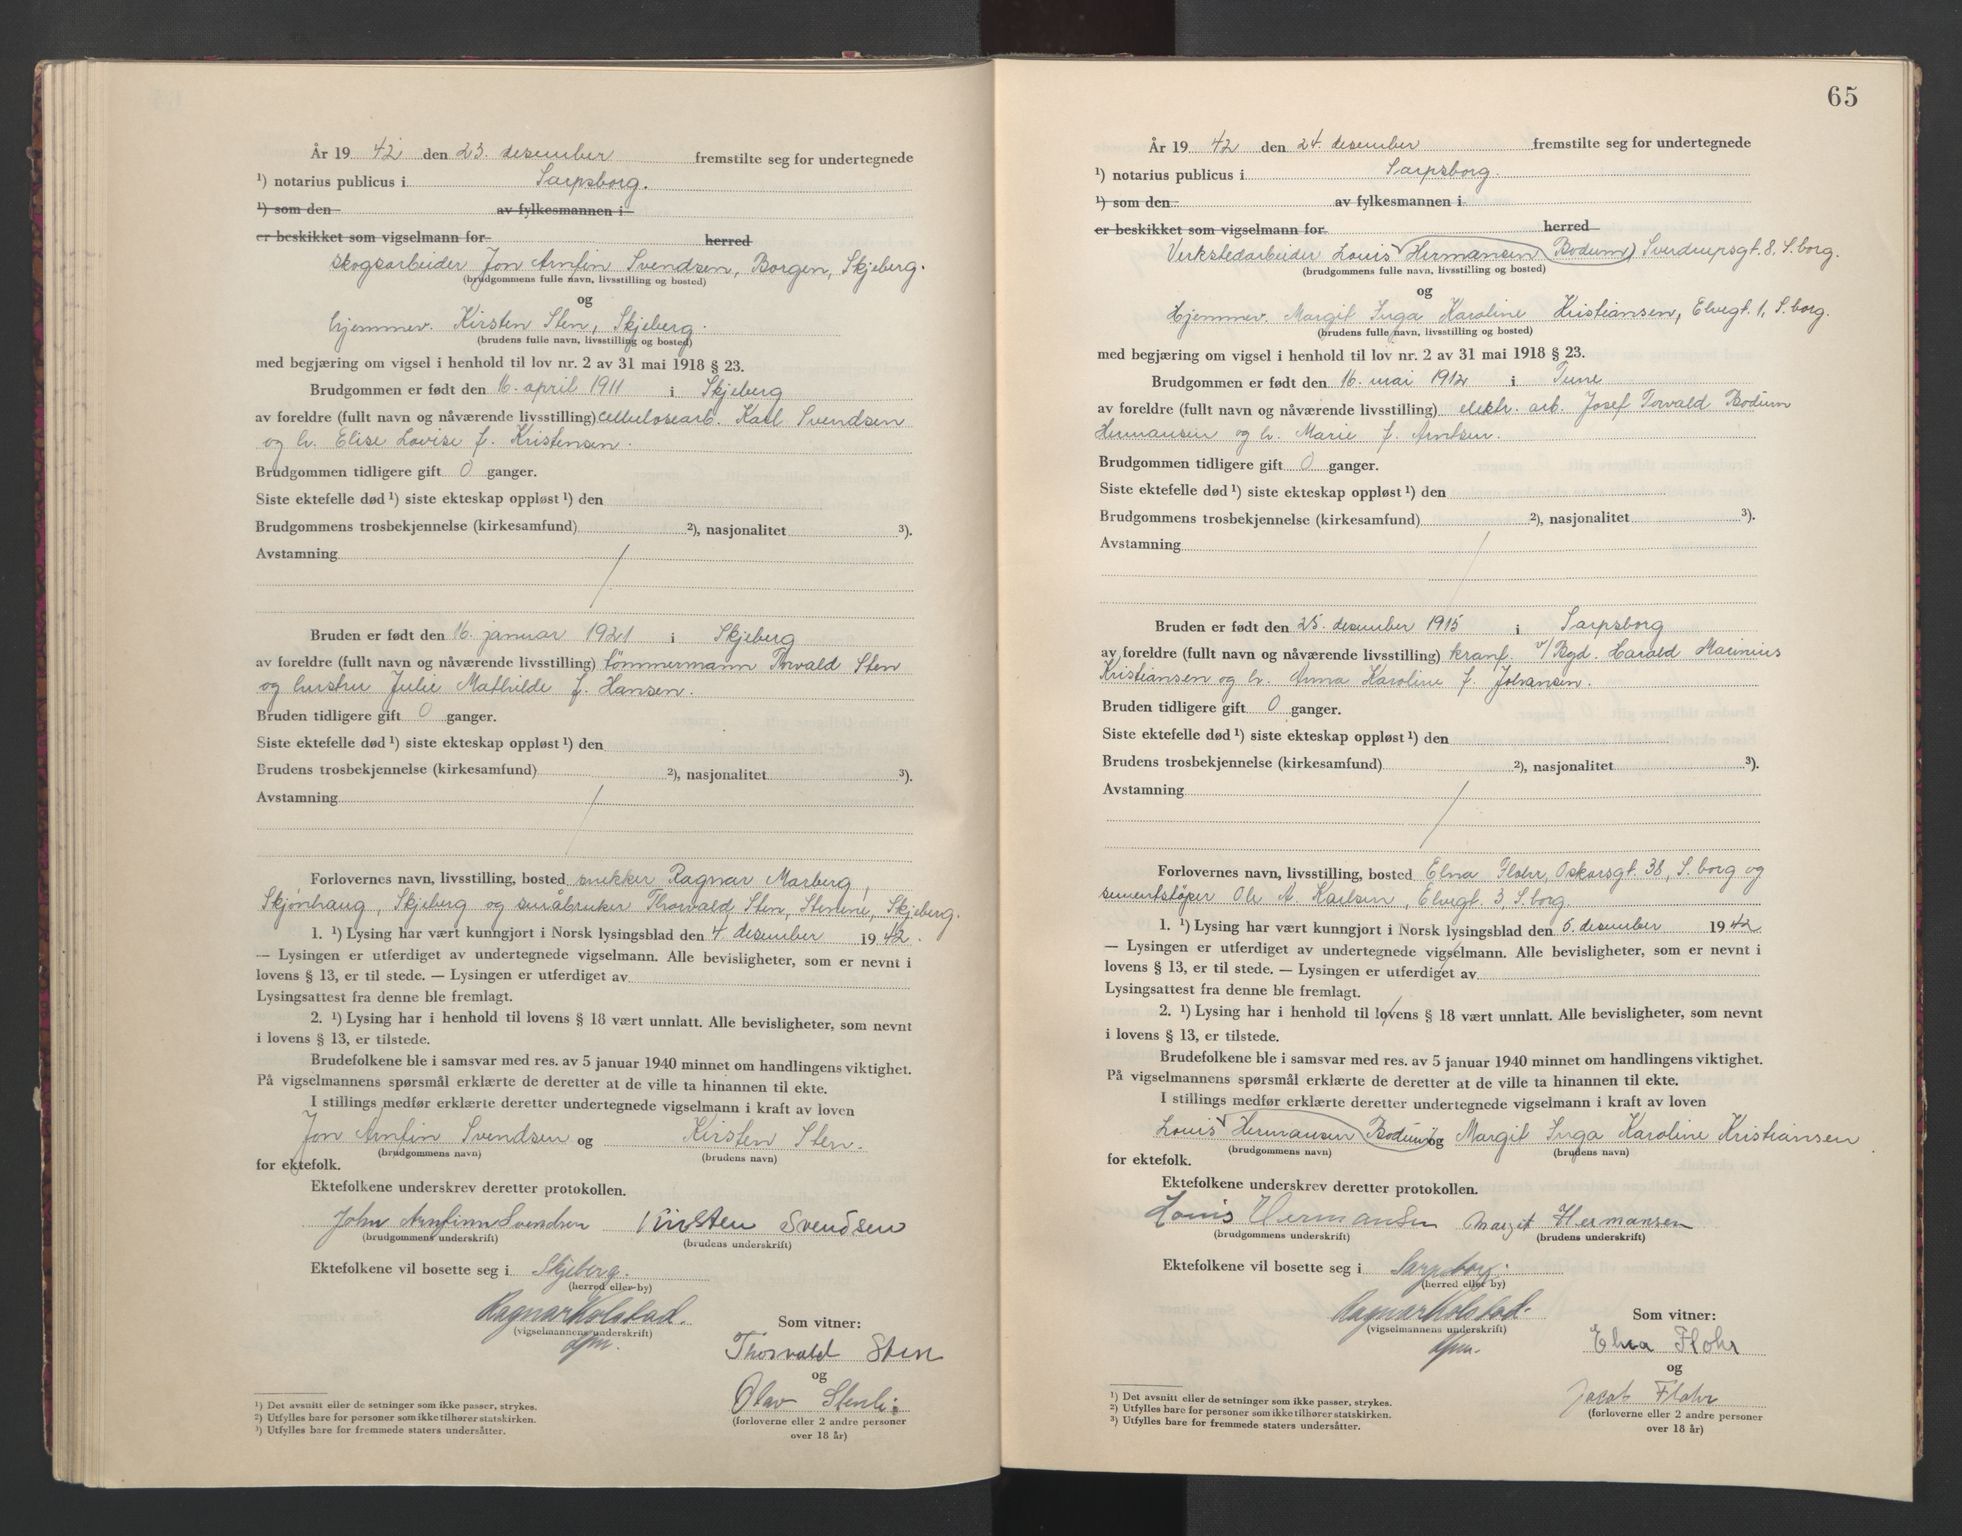 År 19 42 den 23. desember fremstilte seg for undertegnede
¹) notarius publicus i Sarpsborg.
¹) som den av fylkesmannen i
er beskikket som vigselmann for herred
skogsarbeider Jon Arnfin Svendsen, Borgen, Skjeberg.
(brudgommens fulle navn, livsstilling og bosted)
og
hjemmev. Kirsten Sten, Skjeberg.
(brudens fulle navn, livsstilling og bosted)
med begjæring om vigsel i henhold til lov nr. 2 av 31 mai 1918 § 23.
Brudgommen er født den 16. april 1911 i Skjeberg
av foreldre (fullt navn og nåværende livsstilling) cellulosearb. Karl Svendsen
og h. Elise Lovise f. Kristensen.
Brudgommen tidligere gift 0 ganger.
Siste ektefelle død ¹) siste ekteskap oppløst ¹) den
Brudgommens trosbekjennelse (kirkesamfund) ²), nasjonalitet ³).
Avstamning
Bruden er født den 16. januar 1921 i Skjeberg
av foreldre (fullt navn og nåværende livsstilling) tömmermann Torvald Sten
og hustru Julie Mathilde f. Hansen.
Bruden tidligere gift 0 ganger.
Siste ektefelle død ¹) siste ekteskap oppløst ¹) den
Brudens trosbekjennelse (kirkesamfund) ²), nasjonalitet ³).
Avstamning
Forlovernes navn, livsstilling, bosted snekker Ragnar Marberg,
Skjønhaug, Skjeberg og småbruker Thorvald Sten, Stenene, Skjeberg.
1. ¹) Lysing har vært kunngjort i Norsk lysingsblad den 4. desember 1942.
— Lysingen er utferdiget av undertegnede vigselmann. Alle bevisligheter, som er nevnt i
lovens § 13, er til stede. — Lysingen er utferdiget av
Lysingsattest fra denne ble fremlagt.
2. ¹) Lysing har i henhold til lovens § 18 vært unnlatt. Alle bevisligheter, som nevnt
i lovens § 13, er tilstede.
Brudefolkene ble i samsvar med res. av 5 januar 1940 minnet om handlingens viktighet.
På vigselmannens spørsmål erklærte de deretter at de ville ta hinannen til ekte.
I stillings medfør erklærte deretter undertegnede vigselmann i kraft av loven
Jon Arnfin Svendsen og Kirsten Sten.
(brudgommens navn) (brudens navn)
for ektefolk.
Ektefolkene underskrev deretter protokollen.
John Arnfinn Svendsen Kirsten Svendsen
(brudgommens underskrift) (brudens underskrift)
Ektefolkene vil bosette seg i Skjeberg.
(herred eller by)
Ragnar Kolstad.
(vigselmannens underskrift)
Som vitner:
Thorvald Sten
og
Olav Stenli.
(forloverne eller 2 andre personer
over 18 år)
¹) Det avsnitt eller de setninger som ikke passer, strykes.
²) Utfylles bare for personer som ikke tilhører statskirken.
³) Utfylles bare for fremmede staters undersåtter.
65
År 19 42 den 24. desember fremstilte seg for undertegnede
¹) notarius publicus i Sarpsborg.
¹) som den av fylkesmannen i
er beskikket som vigselmann for herred
Verkstedarbeider Louis Hermansen (Bodum) Sverdrupsgt. 8, S.borg.
(brudgommens fulle navn, livsstilling og bosted)
og
Hjemmev. Margit Inga Karoline Kristiansen, Elvegt. 1, S.borg.
(brudens fulle navn, livsstilling og bosted)
med begjæring om vigsel i henhold til lov nr. 2 av 31 mai 1918 § 23.
Brudgommen er født den 16. mai 1912 i Tune
av foreldre (fullt navn og nåværende livsstilling) elektr. arb. Josef Torvald Bodum
Hermansen og h. Marie f. Arntsen.
Brudgommen tidligere gift 0 ganger.
Siste ektefelle død ¹) siste ekteskap oppløst ¹) den
Brudgommens trosbekjennelse (kirkesamfund) ²), nasjonalitet ³).
Avstamning
Bruden er født den 25. desember 1915 i Sarpsborg
av foreldre (fullt navn og nåværende livsstilling) kranf. v/Bgd. Harald Marinius
Kristiansen og h. Anna Karoline f. Johansen.
Bruden tidligere gift 0 ganger.
Siste ektefelle død ¹) siste ekteskap oppløst ¹) den
Brudens trosbekjennelse (kirkesamfund) ²), nasjonalitet ³).
Avstamning
Forlovernes navn, livsstilling, bosted Elna Flohr, Oskarsgt. 38, S.borg og
sementstöper Ole A. Karlsen, Elvegt. 3, S.borg.
1. ¹) Lysing har vært kunngjort i Norsk lysingsblad den 5. desember 1942
— Lysingen er utferdiget av undertegnede vigselmann. Alle bevisligheter, som er nevnt i
lovens § 13, er til stede. — Lysingen er utferdiget av
Lysingsattest fra denne ble fremlagt.
2. ¹) Lysing har i henhold til lovens § 18 vært unnlatt. Alle bevisligheter, som nevnt
i lovens § 13, er tilstede.
Brudefolkene ble i samsvar med res. av 5 januar 1940 minnet om handlingens viktighet.
På vigselmannens spørsmål erklærte de deretter at de ville ta hinannen til ekte.
I stillings medfør erklærte deretter undertegnede vigselmann i kraft av loven
Louis Hermansen (Bodum) og Margit Inga Karoline Kristiansen
(brudgommens navn) (brudens navn)
for ektefolk.
Ektefolkene underskrev deretter protokollen.
Louis Hermansen Margit Hermansen
(brudgommens underskrift) (brudens underskrift)
Ektefolkene vil bosette seg i Sarpsborg.
(herred eller by)
Ragnar Kolstad.
(vigselmannens underskrift)
Som vitner:
Elna Flohr
og
Jacob Flohr
(forloverne eller 2 andre personer
over 18 år)
¹) Det avsnitt eller de setninger som ikke passer, strykes.
²) Utfylles bare for personer som ikke tilhører statskirken.
³) Utfylles bare for fremmede staters undersåtter.